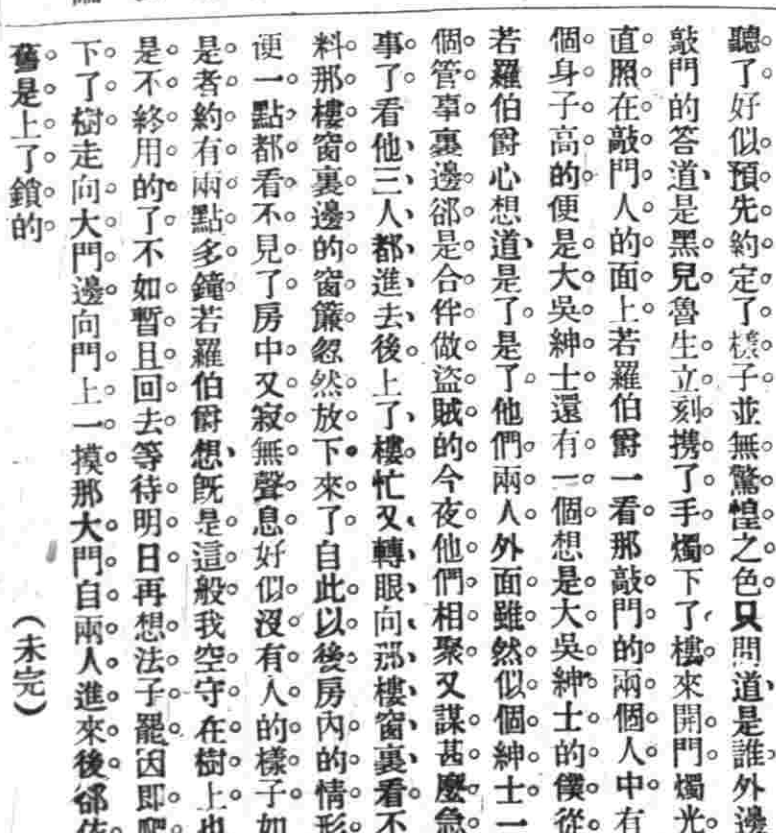 聽了好似預先約定了樣子並無驚惶之色只問道是誰外邊
敲門的答道是黑兒魯生立刻攜了手燭下了樓來開門燭光
直照在敲門人的面上若羅伯爵一看那敲門的兩個人中有
個身子高的便是大吳紳士還有一個想是大吳紳士的僕從
若羅伯爵心想道是了是了他們兩人外面雖然似個紳士一
個管事裏邊卻是合伴做盜賊的今夜他們相聚又謀甚麼急
事了看他三人都進去後上了樓忙又轉眼向那樓窗裏看不
料那樓窗裏邊的窗簾忽然放下來了自此以後房內的情形
便一點都看不見了房中又寂無聲息好似沒有人的樣子如
是者約有兩點多鐘若羅伯爵想既是這般我空守在樹上也
是不終用的了不如暫且回去等待明日再想法子罷因即爬
下了樹走向大門邊向門上一摸那大門自兩人進來後卻依
舊是上了鎖的
（未完）